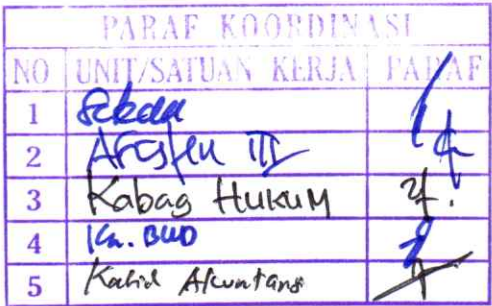 PARAF KOORDINASI
NO UNIT/SATUAN KERJA PARAF
1 Sekda
2 Asisten III
3 Kabag HUKUM
4 Ka. BUD
5 Kabid Akuntansi